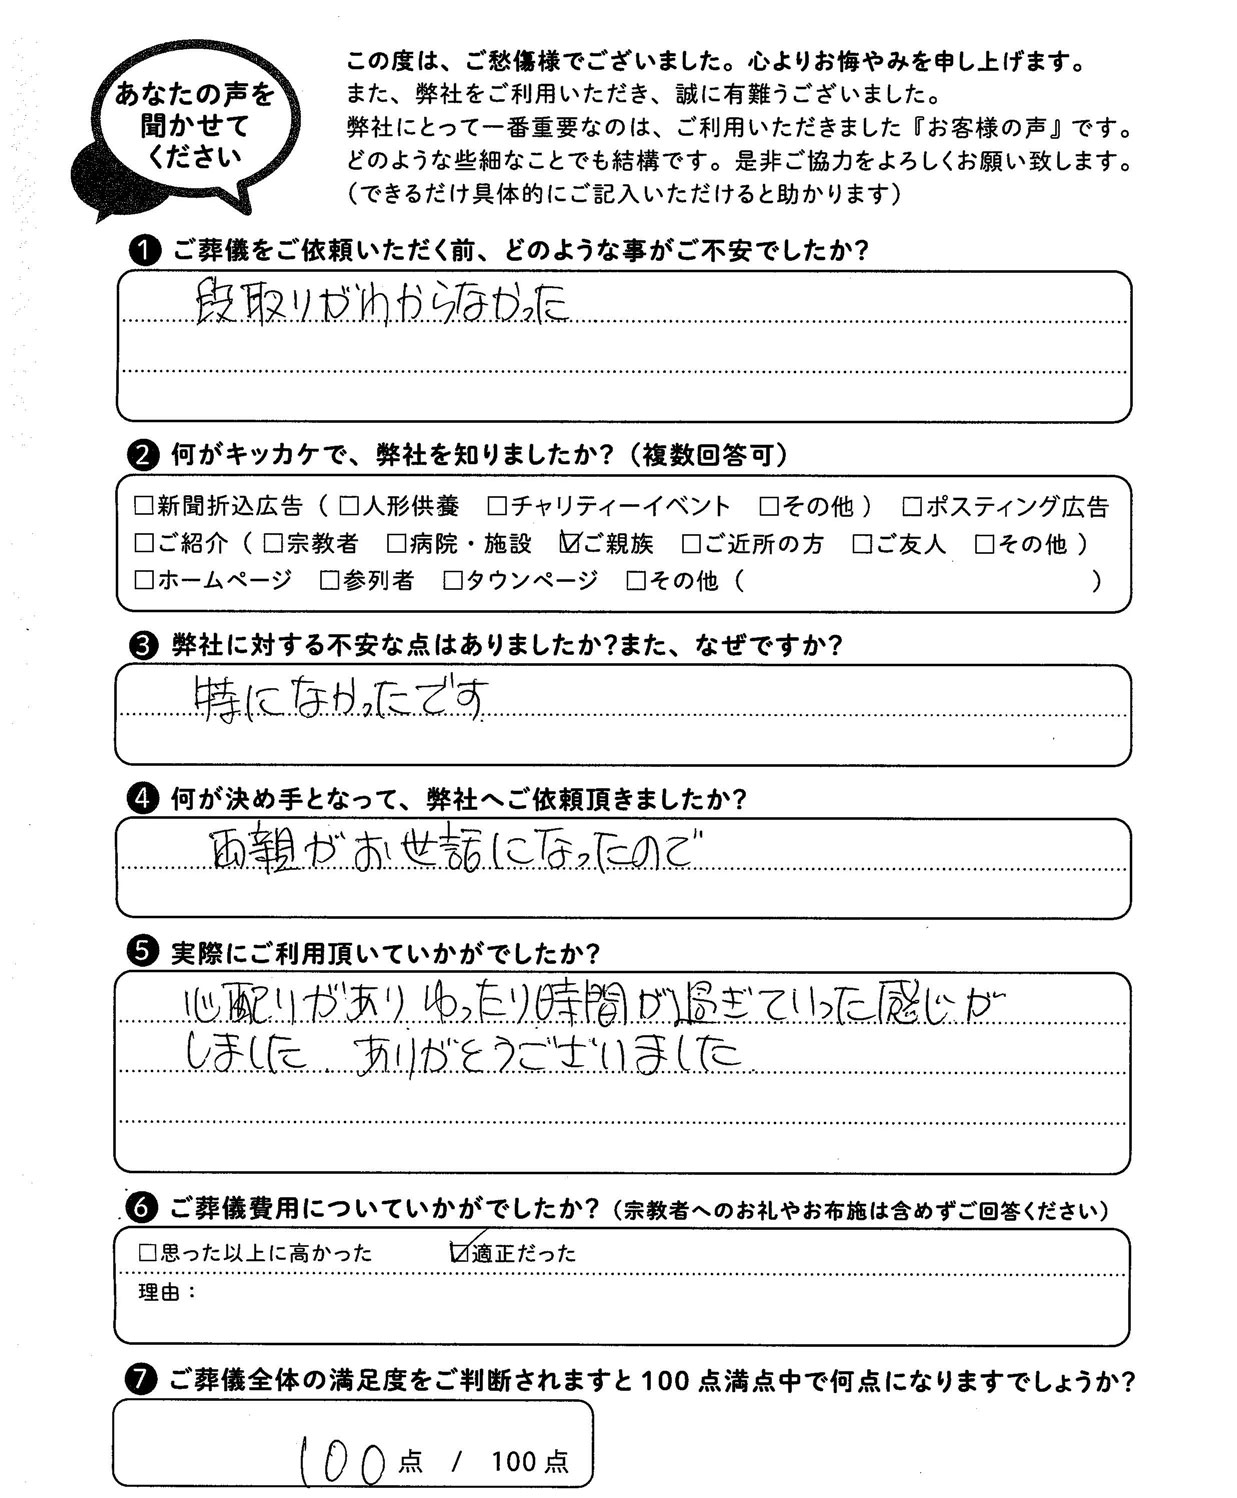 あなたの声を
聞かせて
ください
この度は、ご愁傷様でございました。心よりお悔やみを申し上げます。
また、弊社をご利用いただき、誠に有難うございました。
弊社にとって一番重要なのは、ご利用いただきました『お客様の声』です。
どのような些細なことでも結構です。是非ご協力をよろしくお願い致します。
（できるだけ具体的にご記入いただけると助かります）
❶ ご葬儀をご依頼いただく前、どのような事がご不安でしたか?
段取りがわからなかった
❷ 何がキッカケで、弊社を知りましたか?（複数回答可）
□新聞折込広告（ □人形供養 □チャリティーイベント □その他 ） □ポスティング広告
□ご紹介（ □宗教者 □病院・施設 ☑ご親族 □ご近所の方 □ご友人 □その他 ）
□ホームページ □参列者 □タウンページ □その他（ ）
❸ 弊社に対する不安な点はありましたか?また、なぜですか?
特になかったです
❹ 何が決め手となって、弊社へご依頼頂きましたか?
両親がお世話になったので
❺ 実際にご利用頂いていかがでしたか?
心配りがあり ゆったり時間が過ぎていった感じが
しました ありがとうございました
❻ ご葬儀費用についていかがでしたか?（宗教者へのお礼やお布施は含めずご回答ください）
□思った以上に高かった ☑適正だった
理由：
❼ ご葬儀全体の満足度をご判断されますと 100 点満点中で何点になりますでしょうか?
100 点 / 100 点